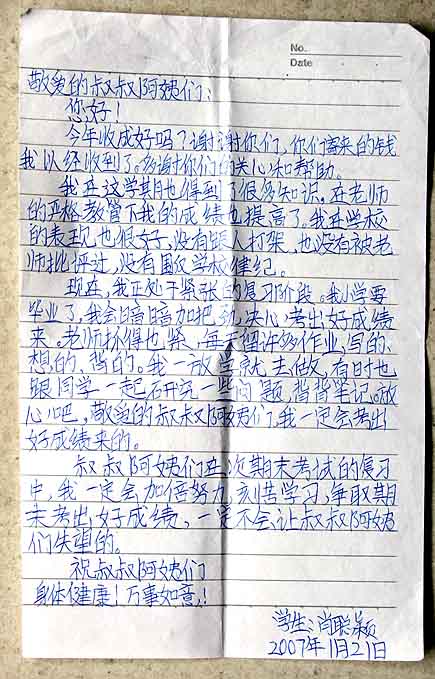 No.
Date
敬爱的叔叔阿姨们：
您好！
今年收成好吗？谢谢你们，你们寄来的钱
我以经收到了。多谢你们的关心和帮助。
我在这学期也得到了很多知识，在老师
的严格教管下我的成绩也提高了。我在学校
的表现也很好，没有跟人打架，也没有被老
师批评过，没有围反学校律纪。
现在，我正处于紧张的复习阶段。我小学要
毕业了，我会暗暗加把劲，决心考出好成绩
来。老师抓得也紧，每天把许多作业，写的、
想的、背的。我一放学就去做，有时也
跟同学一起研究一些问题，背背笔记。放
心吧，敬爱的叔叔阿姨们，我一定会考出
好成绩来的。
叔叔阿姨们在次期末考试的复习
中，我一定会加倍努力，刻苦学习，争取期
末考出好成绩，一定不会让叔叔阿姨
们失望的。
祝叔叔阿姨们
身体健康！万事如意！
学生：肖聪颖
2007年1月21日